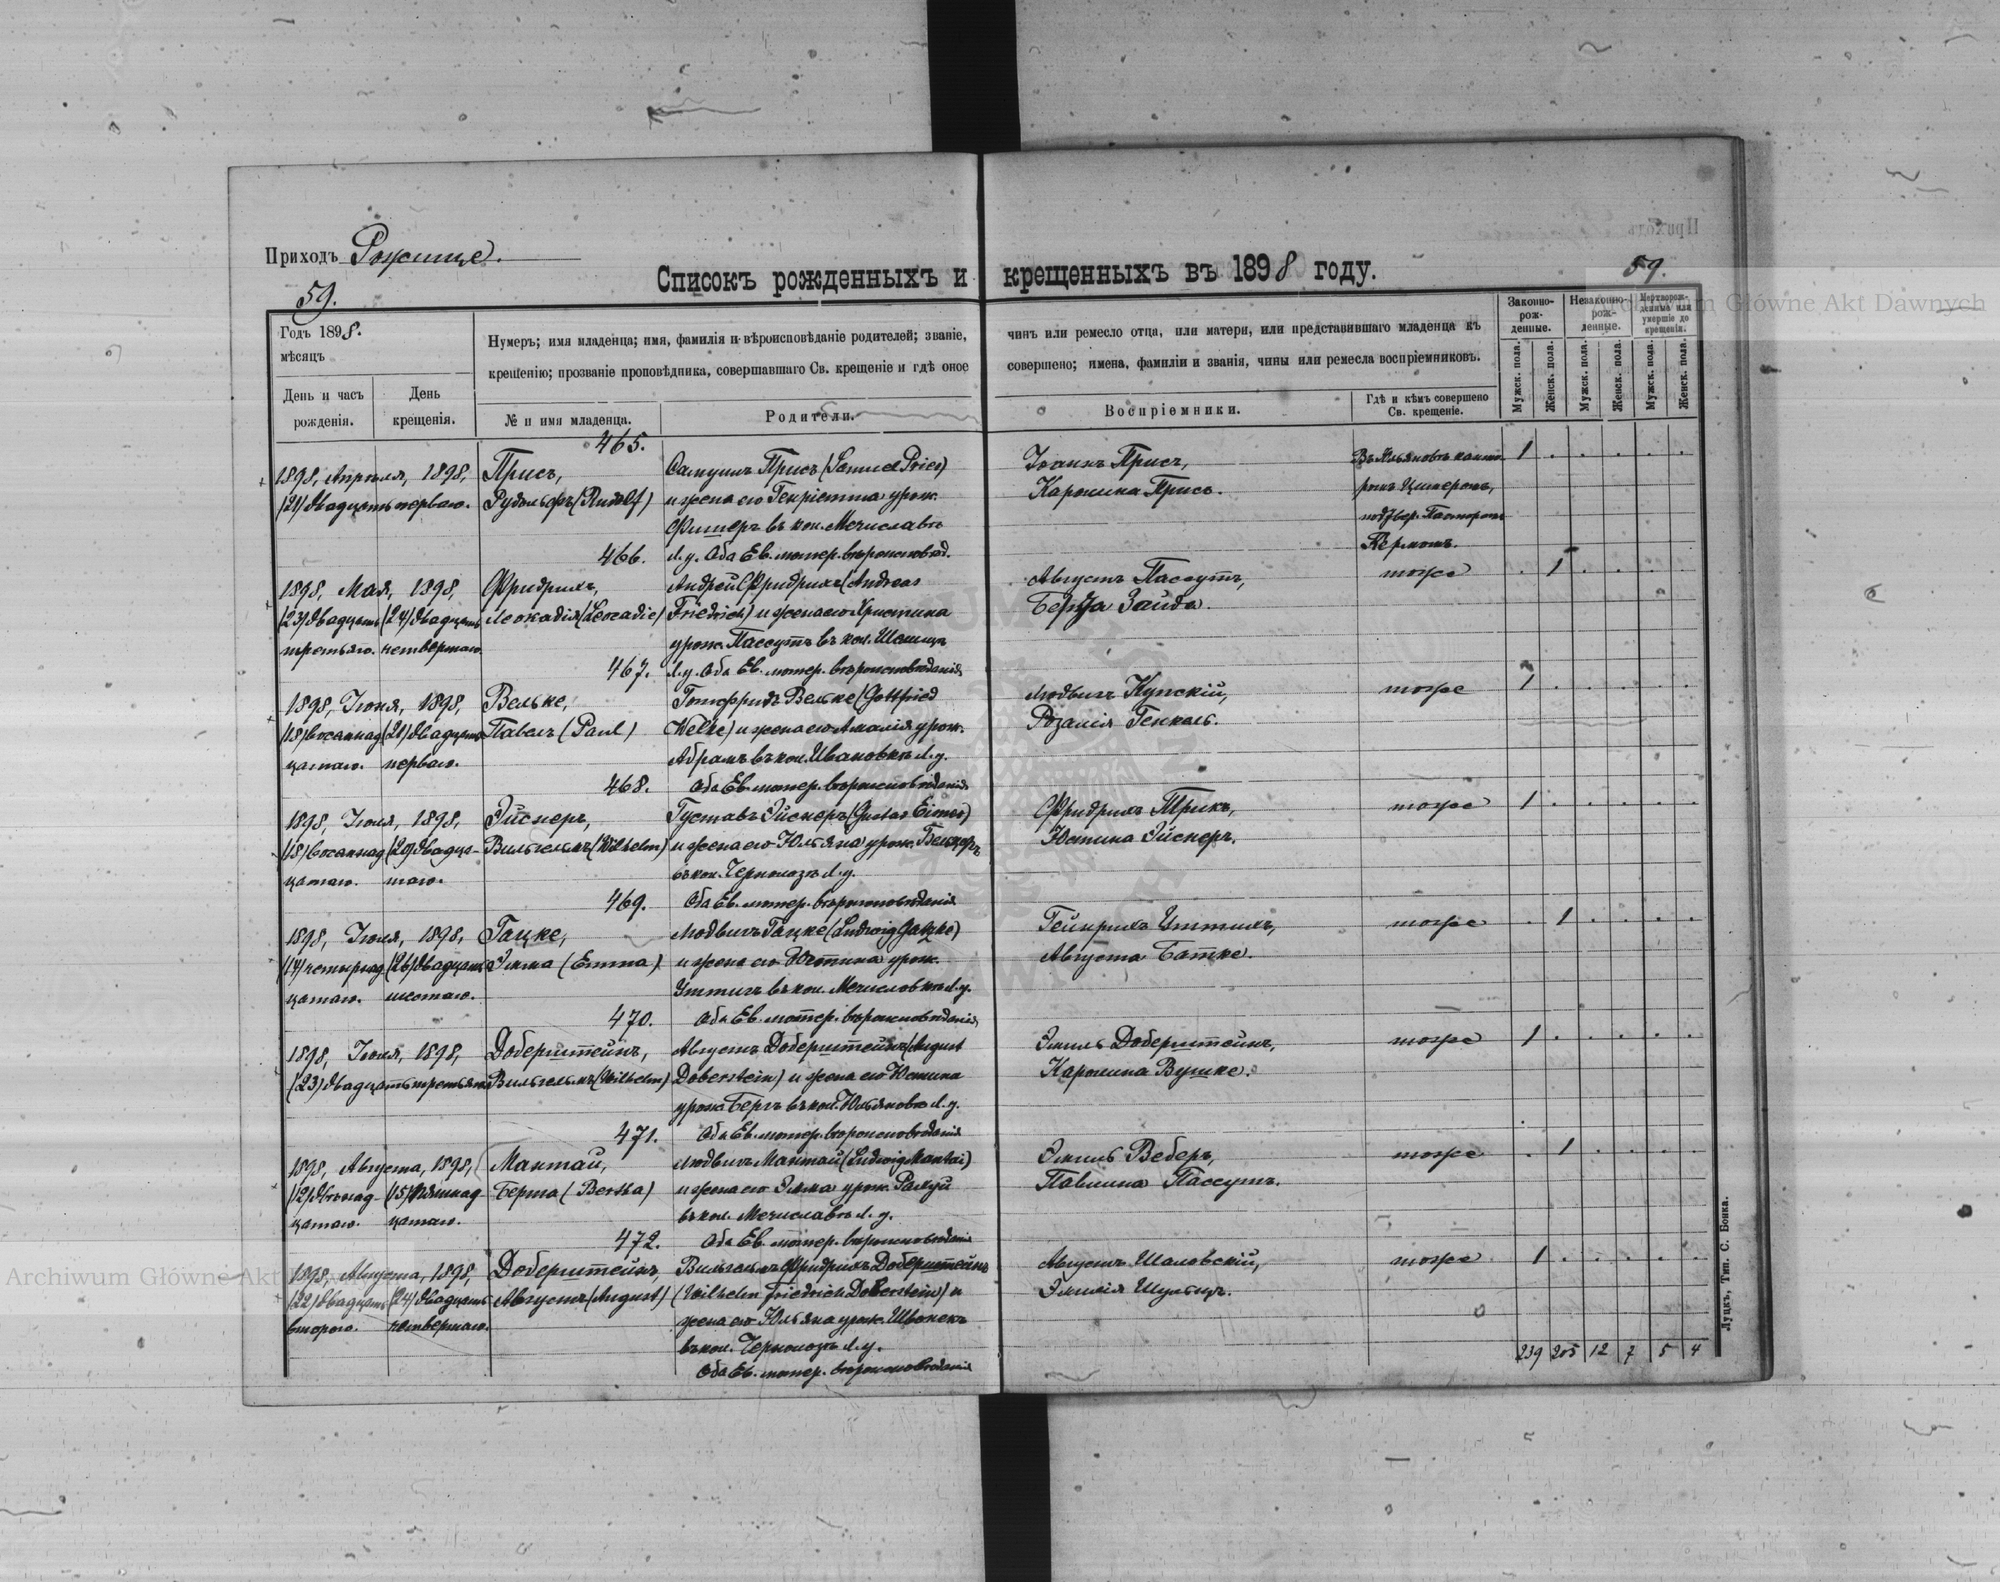 Приходъ Рожище.
59.
59.
Списокъ рожденныхъ и крещенныхъ въ 1898 году.
Годъ 1898.
мѣсяцъ
День и часъ рожденія.
День крещенія.
Нумеръ; имя младенца; имя, фамилія и вѣроисповѣданіе родителей; званіе, чинъ или ремесло отца, или матери, или представившаго младенца къ
крещенію; прозваніе проповѣдника, совершавшаго Св. крещеніе и гдѣ оное совершено; имена, фамиліи и званія, чины или ремесла воспріемниковъ.
№ и имя младенца.
Родители.
Воспріемники.
Гдѣ и кѣмъ совершено Св. крещеніе.
Законно-рож-денные.
Незаконно-рож-денные.
Мертворож-денные или умершіе до крещенія.
Мужск. пола.
Женск. пола.
Мужск. пола.
Женск. пола.
Мужск. пола.
Женск. пола.
465.
1898, Апрѣля, 1898, Присъ, Самуилъ Присъ (Samuel Pries) Іоаннъ Присъ, Въ Юльяновкѣ канто- 1
(21) двадцать перваго. Рудольфъ (Rudolf) и жена его Генріетта урож. Каролина Присъ. ромъ
Фишеръ въ кол. Мечиславкѣ подтвер. Пасторомъ
466. Л. у. Оба Ев. лютер. вѣроисповѣд. Кермомъ.
1898, Мая, 1898, Фридрихъ, Андрей Фридрихъ (Andreas Августъ Пассутъ, тоже 1
(23) двадцать (24) двадцать Леокадія (Leocadie) Friedrich) и жена его Христина Зайда.
третьяго. четвертаго. урож. Пассутъ въ кол.
467. Л. у. Оба Ев. лютер. вѣроисповѣданія
1898, Іюня, 1898, Вельке, Готфридъ Вельке (Gottfried Людвигъ Купскій, тоже 1
(18) восемнад (21) двадцать Павелъ (Paul) Welke) и жена его Амалія урож. Розалія Генкель.
цатаго. перваго. Абрамъ въ кол. Ивановкѣ Л. у.
468. Оба Ев. лютер. вѣроисповѣданія
1898, Іюля, 1898, Эйснеръ, Густавъ Эйснеръ (Gustav Eisner) Фридрихъ тоже 1
(18) восемнад (20) двадца- Вильгельмъ (Wilhelm) и жена его Юльяна урож. Юстина Эйснеръ.
цатаго. таго. въ кол. Л. у.
469. Оба Ев. лютер. вѣроисповѣданія
1898, Іюля, 1898, Гацке, Людвигъ Гацке (Ludwig Gatzke) Гейнрихъ тоже 1
(14) четырнад (26) двадцать Эмма (Emma) и жена его Юстина урож. Августа Батке.
цатаго. шестаго. въ кол. Мечиславкѣ Л. у.
470. Оба Ев. лютер. вѣроисповѣданія
1898, Іюля, 1898, Доберштейнъ, Августъ Доберштейнъ (August Эмиль Доберштейнъ, тоже 1
(23) двадцать третьяго Вильгельмъ (Wilhelm) Doberstein) и жена его Юстина Каролина Вушке.
урож. Бергъ въ кол. Юльяновкѣ Л. у.
471. Оба Ев. лютер. вѣроисповѣданія
1898, Августа, 1898, Мантай, Людвигъ Мантай (Ludwig Mantai) Эмиль Веберъ, тоже 1
(12) двѣнад (15) пятнад Берта (Bertha) и жена его Эмма урож. Павлина Пассутъ.
цатаго. цатаго. въ кол. Мечиславкѣ Л. у.
472. Оба Ев. лютер. вѣроисповѣданія
1898, Августа, 1898, Доберштейнъ, Вильгельмъ Фридрихъ Доберштейнъ Августъ Шаловскій, тоже 1
(22) двадцать (24) двадцать Августъ (August) (Wilhelm Friedrich Doberstein) и Эмилія Шульцъ.
второго. четвертаго. жена его Юльяна урож.
въ кол. Л. у.
Оба Ев. лютер. вѣроисповѣданія
239 205 12 7 5 4
Луцкъ, Тип. С. Бонка.
Archiwum Główne Akt Dawnych
Archiwum Główne Akt